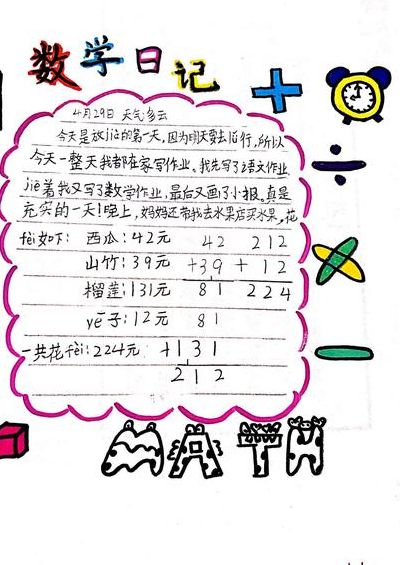 数学日记
4月29日 天气多云
今天是放jià的第一天,因为明天要去旅行,所以
今天一整天我都在家写作业。我先写了语文作业,
jiē着我又写了数学作业,最后又画了小报。真是
充实的一天!晚上,妈妈还带我去水果店买水果,花
fèi如下: 西瓜:42元 42 212
山竹:39元 +39 + 12
榴莲:131元 81 224
yē子:12元 81
一共花fèi:224元 +131
212
MATH